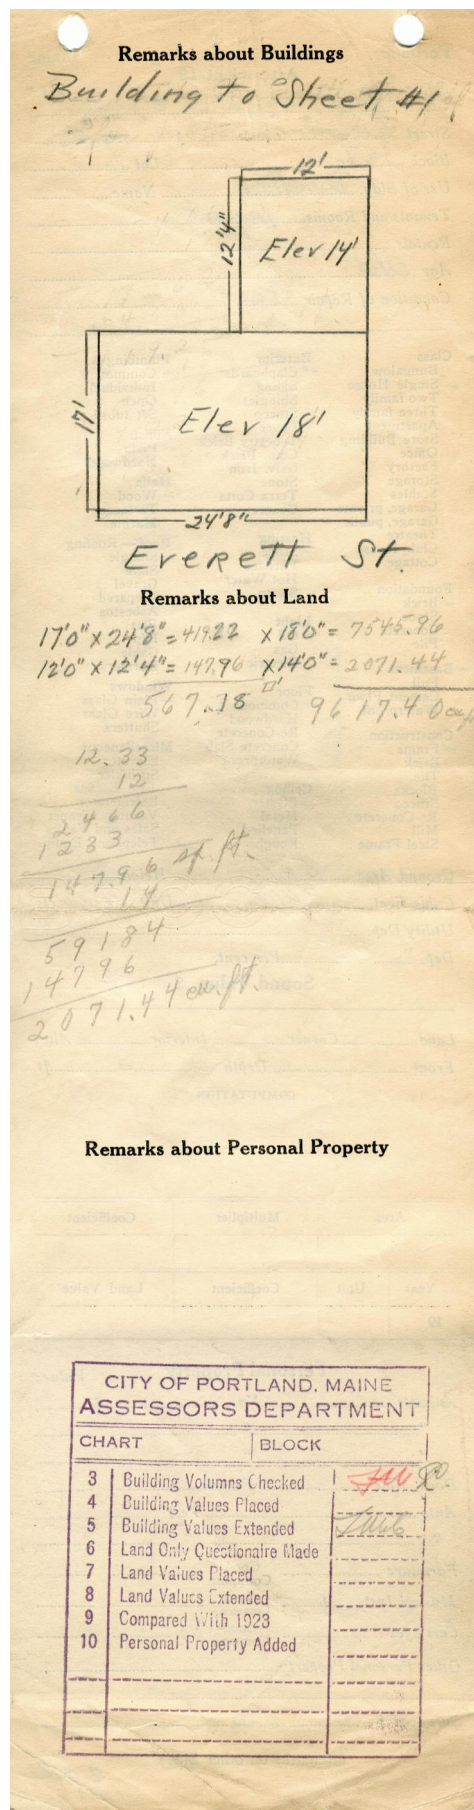 Remarks about Buildings
Building to Sheet #1
12'
12'4"
Elev 14'
17'
Elev 18'
24'8"
Everett St.
Remarks about Land
17'0" x 24'8" = 419.22 x 18'0" = 7545.96
12'0" x 12'4" = 147.96 x 14'0" = 2071.44
567.18 □' 9617.40 cu ft
12.33
12
2466
1233
147.96 sq. ft.
14
59184
14796
2071.44 cu. ft.
Remarks about Personal Property
CITY OF PORTLAND, MAINE
ASSESSORS DEPARTMENT
CHART BLOCK
3 Building Volumns Checked
4 Building Values Placed
5 Building Values Extended
6 Land Only Questionaire Made
7 Land Values Placed
8 Land Values Extended
9 Compared With 1923
10 Personal Property Added